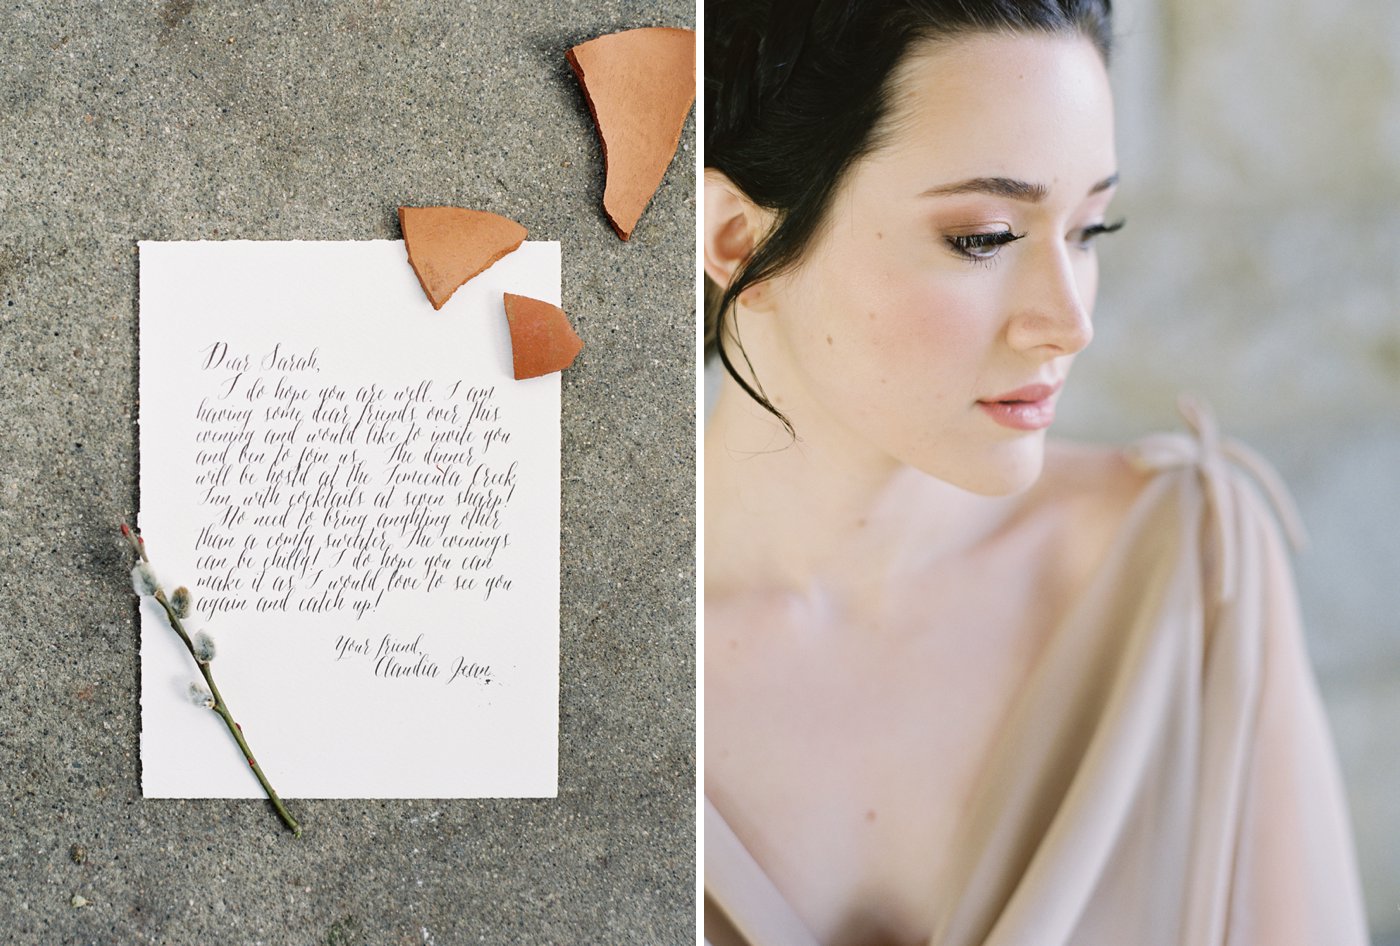 Dear Sarah,
I do hope you are well. I am
having some dear friends over this
evening and would like to invite you
and Ben to join us. The dinner
will be hostd at the Temecula Creek
Inn with cocktails at seven sharp!
No need to bring anything other
than a comfy sweater. The evenings
can be chilly! I do hope you can
make it as I would love to see you
again and catch up!
Your friend,
Claudia Jean